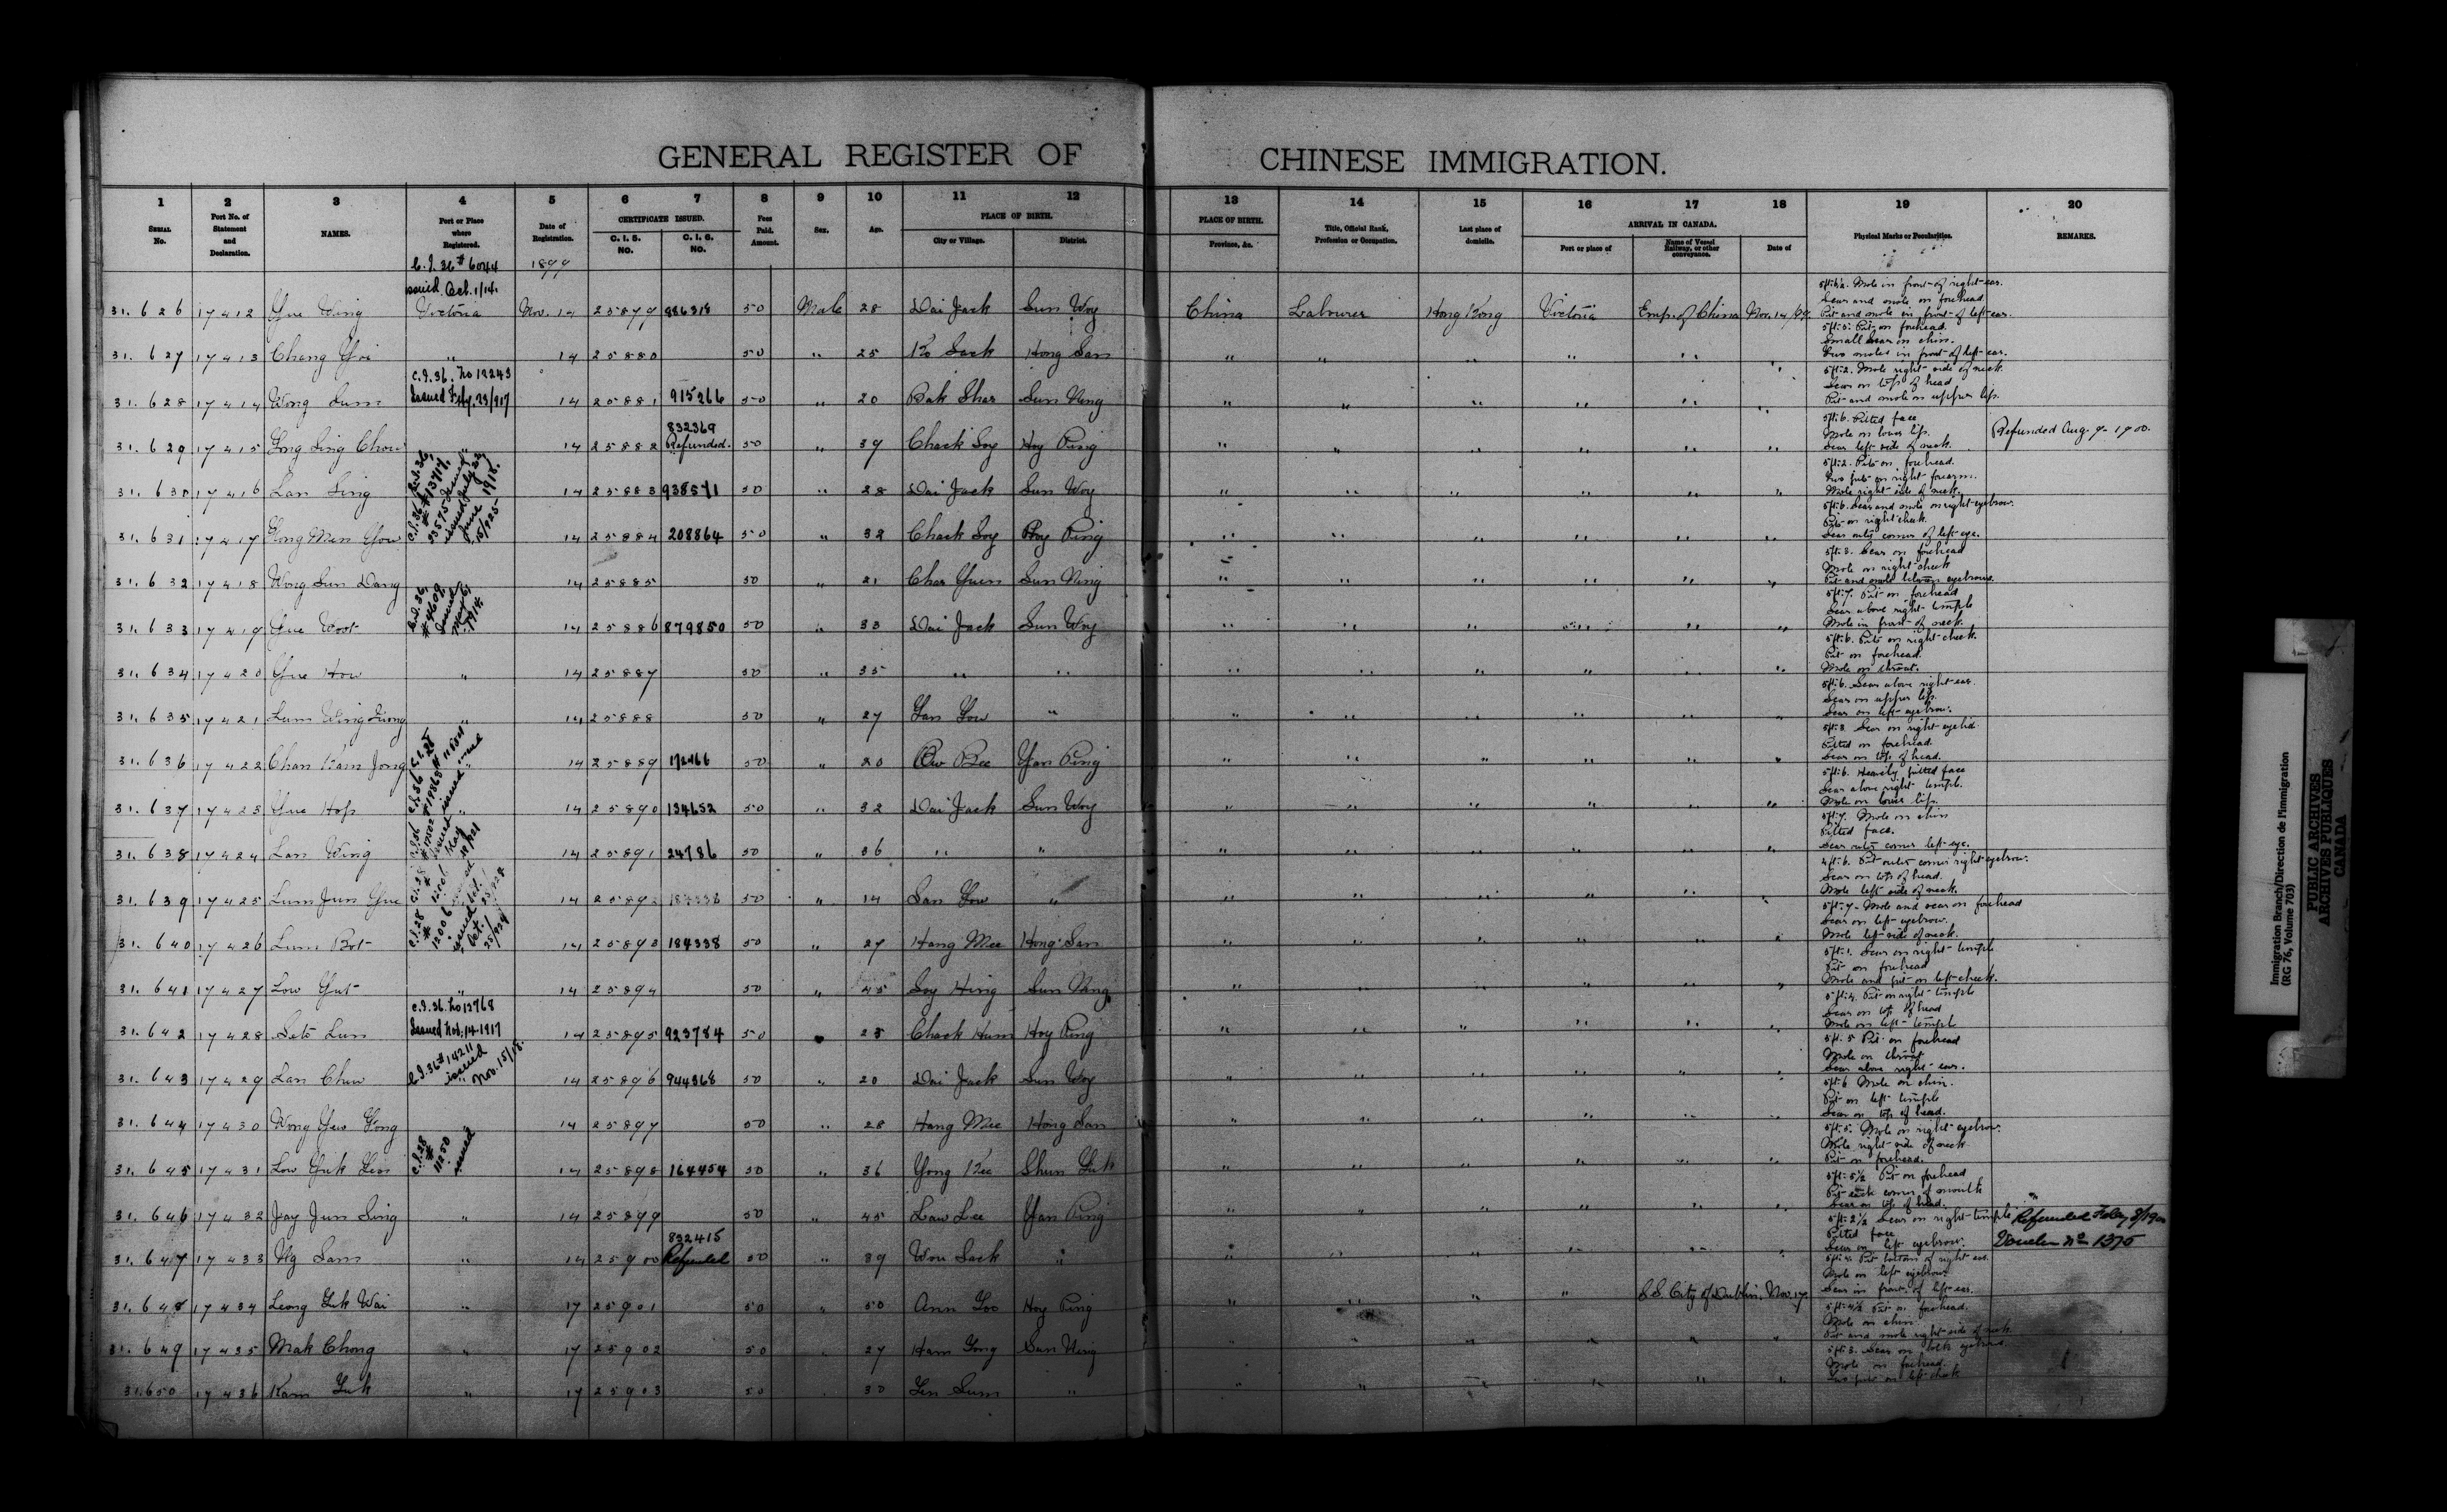 GENERAL REGISTER OF CHINESE IMMIGRATION.
1 2 3 4 5 6 7 8 9 10 11 12 13 14 15 16 17 18 19 20
SERIAL No. Port No. of Statement and Declaration. NAMES. Port or Place where Registered. Date of Registration. CERTIFICATE ISSUED. C. I. 5. NO. C. I. 6. NO. Fees Paid. Amount. Sex. Age. PLACE OF BIRTH. City or Village. District. PLACE OF BIRTH. Province, &c. Title, Official Rank, Profession or Occupation. Last place of domicile. ARRIVAL IN CANADA. Port or place of Name of Vessel Railway, or other conveyance. Date of Physical Marks or Peculiarities. REMARKS.
C.I. 36 # 6044 1899
issued Oct. 1/14.
31.626 17412 Yue Wing Victoria Nov. 14 25879 886318 50 Male 28 Dai Jack Sun Woy China Labourer Hong Kong Victoria Emp. of China Nov. 14/99 5ft:4½. Mole in front of right ear.
Scar and mole on forehead
Pit and mole in front of left ear.
31.627 17413 Chang Yoi " 14 25880 50 " 25 Ko Sack Hong San " " " " " " 5ft:5. Pit on forehead.
Small scar on chin.
Two moles in front of left ear.
C.I. 36. No 12243
Issued Feby. 23/917
31.628 17414 Wong Sum 14 25881 915266 50 " 20 Bak Shar Sun Ning " " " " " " 5ft:2. Mole right side of neck.
Scar on top of head
Pit and mole on upper lip.
832369
31.629 17415 Yong Sing Chow " 14 25882 Refunded. 50 " 39 Chack Soy Hoy Ping " " " " " " 5ft:6. Pitted face
Mole on lower lip.
Scar left side of neck.
Refunded Aug. 9- 1900.
31.630 17416 Lan Sing 14 25883 938571 50 " 28 Dai Jack Sun Woy " " " " " " 5ft:2. Pits on forehead.
Two pits on right forearm.
Mole right side of neck.
31.631 17417 Yong Men Yow 14 25884 208864 50 " 32 Chack Soy Hoy Ping " " " " " " 5ft:6. Scar and mole on right eyebrow.
Pits on right cheek.
Scar outer corner of left eye.
31.632 17418 Wong Sun Dang 14 25885 50 " 21 Char Yuen Sun Ning " " " " " " 5ft:3. Scar on forehead
Mole on right cheek
Pit and mole between eyebrows.
C.I. 36,
# 4609,
Issued
May 6,
1914.
31.633 17419 Yue Woot 14 25886 879850 50 " 33 Dai Jack Sun Woy " " " " " " 5ft:7. Pit on forehead
Scar above right temple
Mole in front of neck.
31.634 17420 Yue How " 14 25887 50 " 35 " " " " " " " " 5ft:6. Pits on right cheek.
Pit on forehead.
Mole on throat.
31.635 17421 Lum Wing Luong " 14 25888 50 " 27 Yan Yow " " " " " " " 5ft:6. Scar above right ear.
Scar on upper lip.
Scar on left eyebrow.
31.636 17422 Chan Kam Jong " 14 25889 172466 50 " 20 Ow Bee Yan Ping " " " " " " 5ft:3. Scar on right eyelid
Pitted on forehead.
Scar on top of head.
31.637 17423 Yue Hop " 14 25890 134652 50 " 32 Dai Jack Sun Woy " " " " " " 5ft:6. Heavily pitted face
Scar above right temple.
Mole on lower lip.
31.638 17424 Lan Wing 14 25891 24786 50 " 36 " " " " " " " " 5ft:7. Mole on chin
Pitted face.
Scar outer corner left eye.
31.639 17425 Lum Jun Yue 14 25892 50 " 14 San Yow " " " " " " " 4ft:6. Pit outer corner right eyebrow.
Scar on top of head.
Mole left side of neck.
31.640 17426 Lum Bot 14 25893 184338 50 " 27 Hang Mee Hong San " " " " " " 5ft:7- Mole and scar on forehead
Scar on left eyebrow.
Mole left side of neck.
31.641 17427 Low Yut " 14 25894 50 " 45 Soy Hing Sun Ning " " " " " " 5ft:1. Scar on right temple
Pit on forehead
Mole and pit on left cheek.
C.I. 36. No 13768
Issued Nov. 14-1917
31.642 17428 Seto Lun 14 25895 923784 50 " 23 Chack Hum Hoy Ping " " " " " " 5ft:4. Pit on right temple
Scar on top of head
Mole on left temple
C.I. 36 # 14211
issued
Nov. 15/18.
31.643 17429 Lan Chuw " 14 25896 944368 50 " 20 Dai Jack Sun Woy " " " " " " 5ft:5 Pit on forehead
Mole on throat
Scar above right ear.
31.644 17430 Wong Yew Yong " 14 25897 50 " 28 Hang Mee Hong San " " " " " " 5ft:6 Mole on chin.
Pit on left temple
Scar on top of head.
C.I. 28
#
11250
issued
31.645 17431 Low Yuk Leen 14 25898 164454 50 " 36 Yong Kee Shun Yuk " " " " " " 5ft:5. Mole on right eyebrow.
Mole right side of neck
Pit on forehead.
31.646 17432 Jay Jun Sing " 14 25899 50 " 45 Law Lee Yan Ping " " " " " " 5ft:5½ Pit on forehead
Pit each corner of mouth
Scar on top of head.
832415
31.647 17433 Ng Sam " 14 25900 Refunded 50 " 39 Wou Sack " " " " " " " 5ft:2½ Scar on right temple
Pitted face
Scar on left eyebrow.
Refunded Feby 8/1900
Voucher No 1375
31.648 17434 Leong Yuk Wai " 17 25901 50 " 50 Ann Yoo Hoy Ping " " " " S.S. City of Dublin. Nov. 17. 5ft:4. Pit bottom of right ear.
Mole on left eyebrow
Scar in front of left ear.
31.649 17435 Mak Chong " 17 25902 50 " 27 Ham Yong Sun Ning " " " " " " 5ft:4½ Pit on forehead.
Mole on chin
Pit and mole right side of neck
31.650 17436 Kam Yuk " 17 25903 50 30 Yen Sum " " " " " " " 5ft:3. Scar on both eyebrows.
Mole on forehead.
Two pits on left cheek
Immigration Branch/Direction de l'Immigration
(RG 76, Volume 703)
PUBLIC ARCHIVES
ARCHIVES PUBLIQUES
CANADA